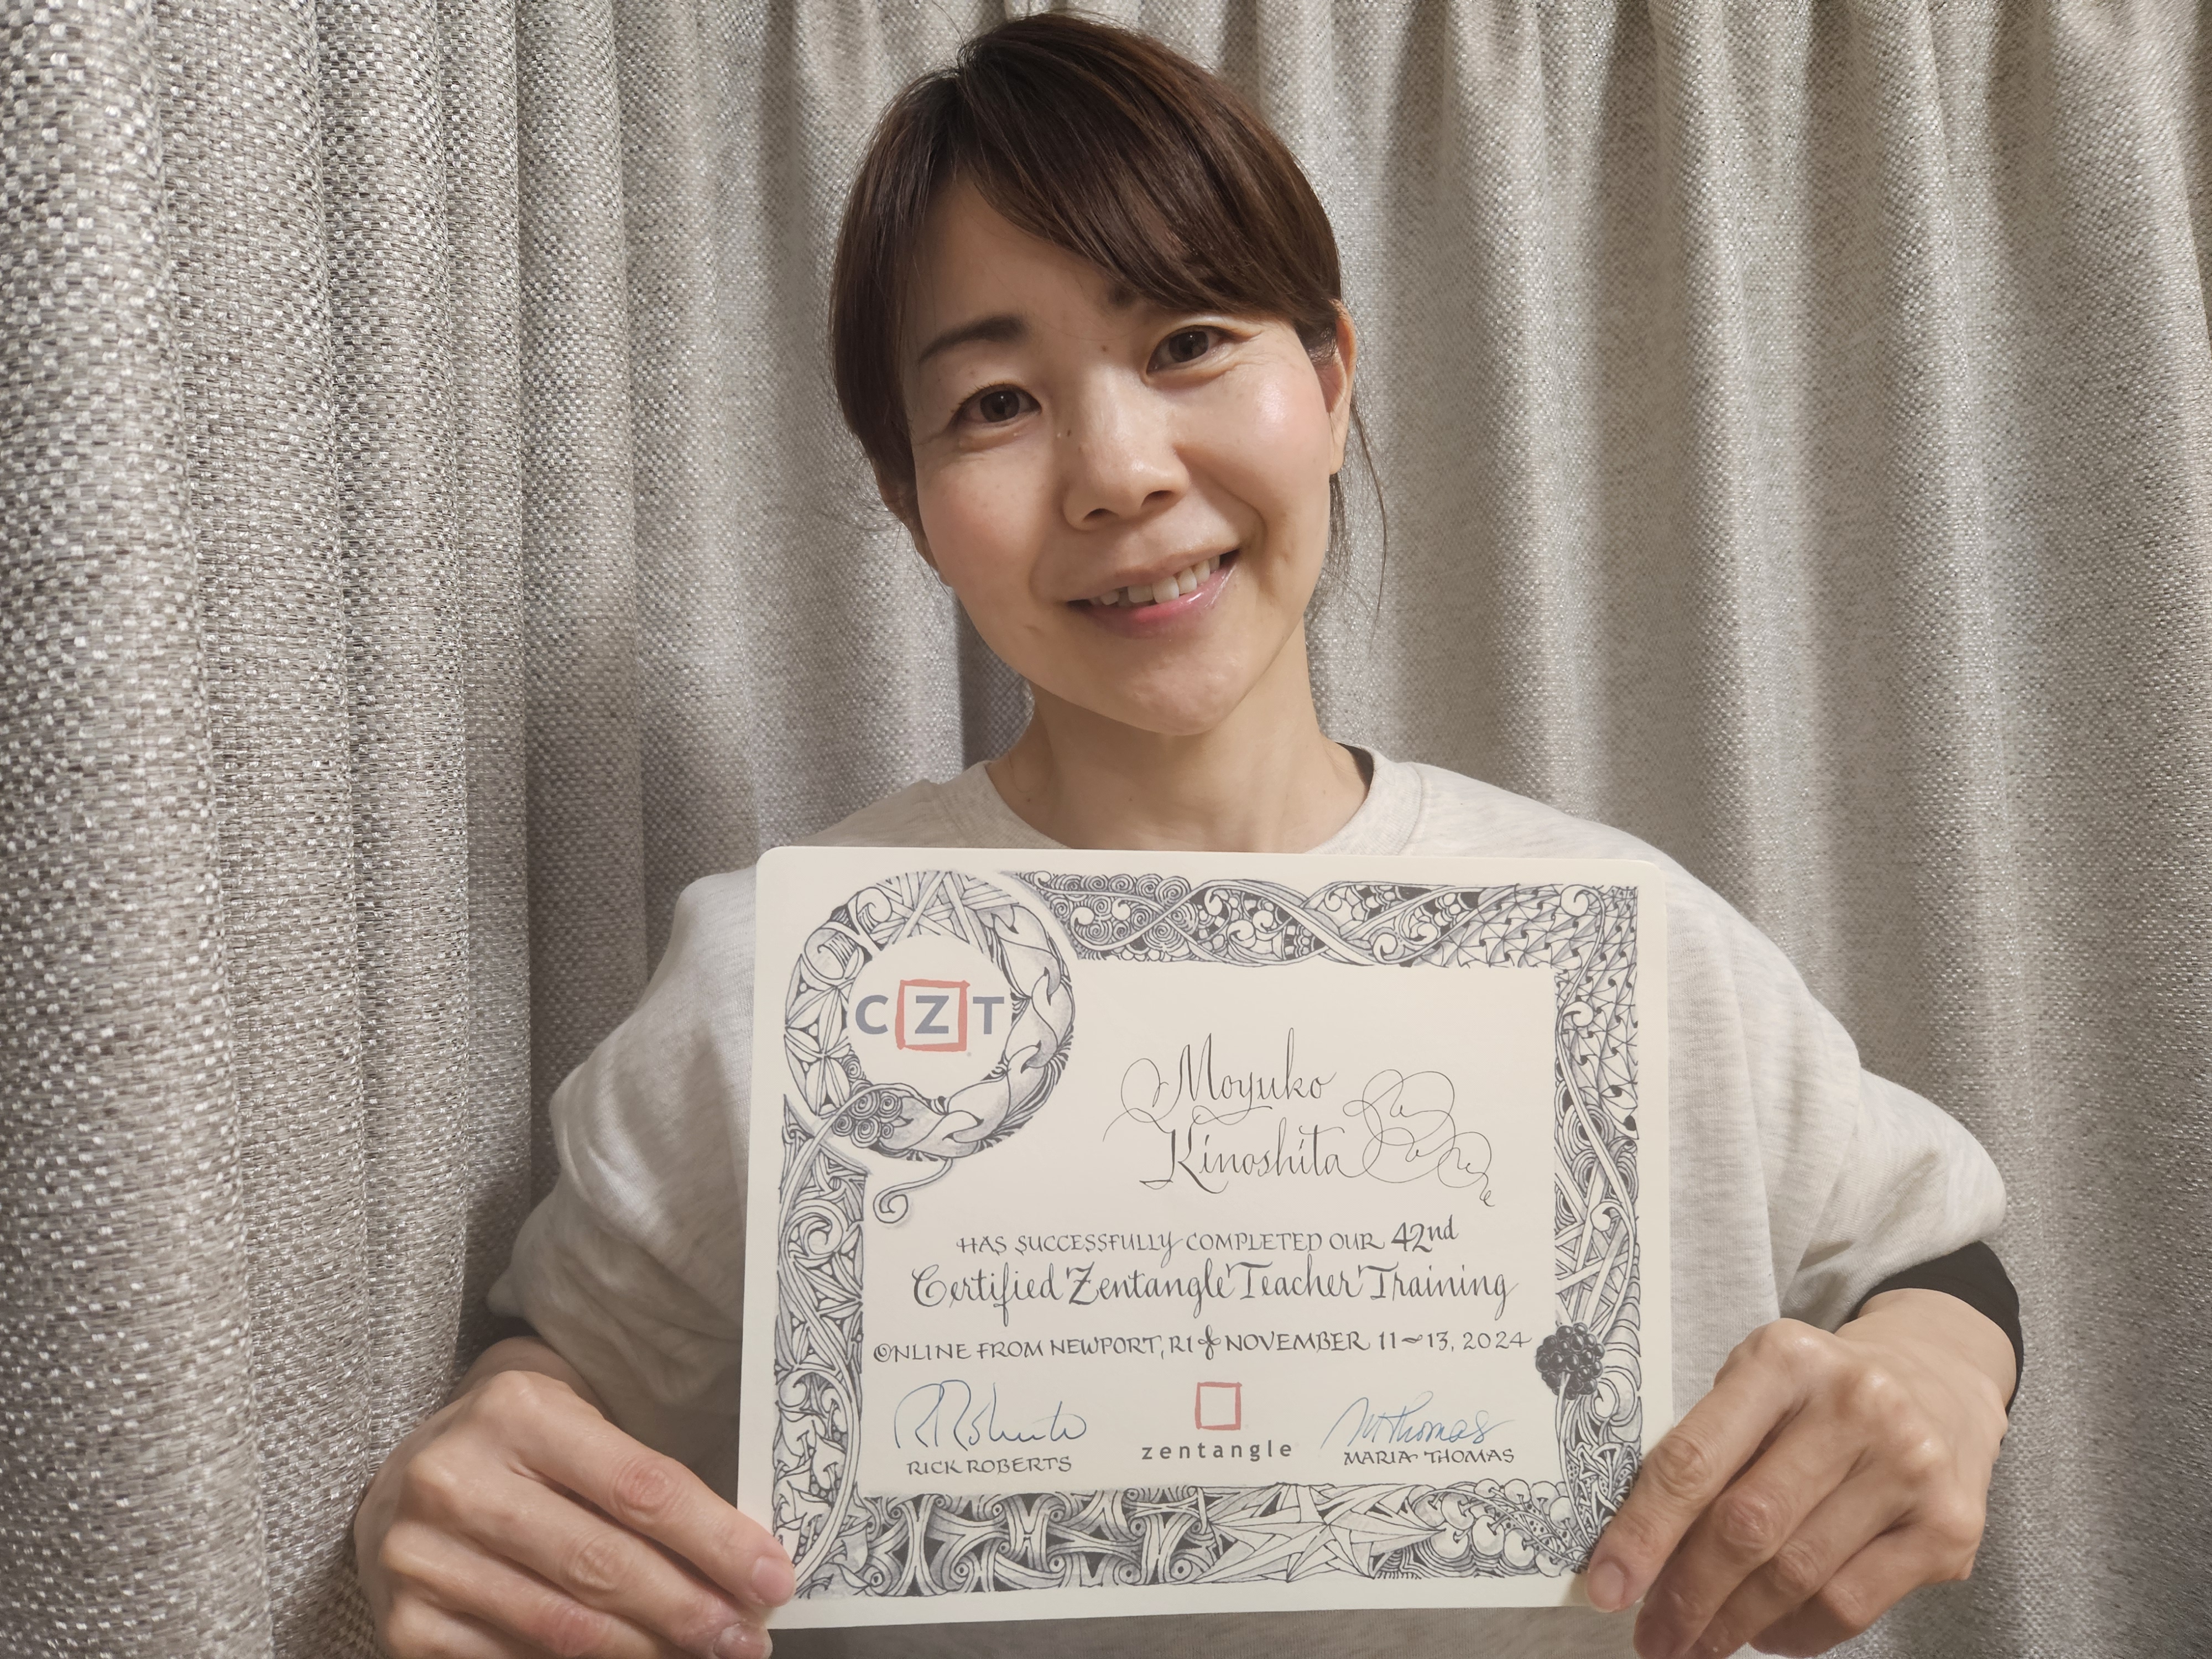 CZT
Moyuko
Kinoshita
HAS SUCCESSFULLY COMPLETED OUR 42nd
Certified Zentangle Teacher Training
ONLINE FROM NEWPORT, RI NOVEMBER 11~13, 2024
RRoberts
zentangle
MThomas
RICK ROBERTS
MARIA THOMAS